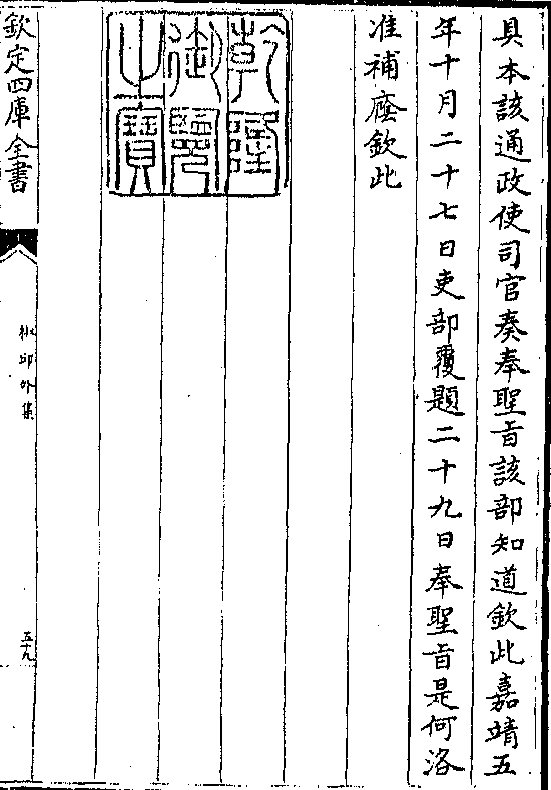 具本該通政使司官奏奉聖旨該部知道欽此嘉靖五
年十月二十七日吏部覆題二十九日奉聖旨是何洛
准補廕欽此
乾隆
御覽
之寶
欽定四庫全書
外集
五十九